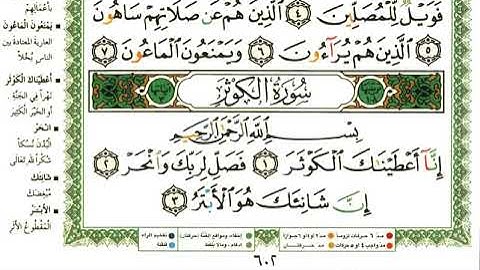 فَوَيْلٌ لِّلْمُصَلِّينَ ٤ الَّذِينَ هُمْ عَن صَلَاتِهِمْ سَاهُونَ
٥ الَّذِينَ هُمْ يُرَآءُونَ ٦ وَيَمْنَعُونَ الْمَاعُونَ ٧
سُورَةُ الْكَوْثَرِ
بِسْمِ اللَّهِ الرَّحْمَٰنِ الرَّحِيمِ
إِنَّآ أَعْطَيْنَاكَ الْكَوْثَرَ ١ فَصَلِّ لِرَبِّكَ وَانْحَرْ ٢
إِنَّ شَانِئَكَ هُوَ الْأَبْتَرُ ٣
بأعمالهم
يَمْنَعُونَ الْمَاعُونَ
العارية المعتادة بين
الناس بُخلاً
أَعْطَيْنَاكَ الْكَوْثَرَ
نهراً في الجنّة
أو الخير الكثير
انْحَرْ
البُدْنَ نُسُكاً
شُكراً لله تعالى
شَانِئَكَ
مُبْغِضَكَ
الْأَبْتَرُ
المقطوع الأثر
٦٠٢